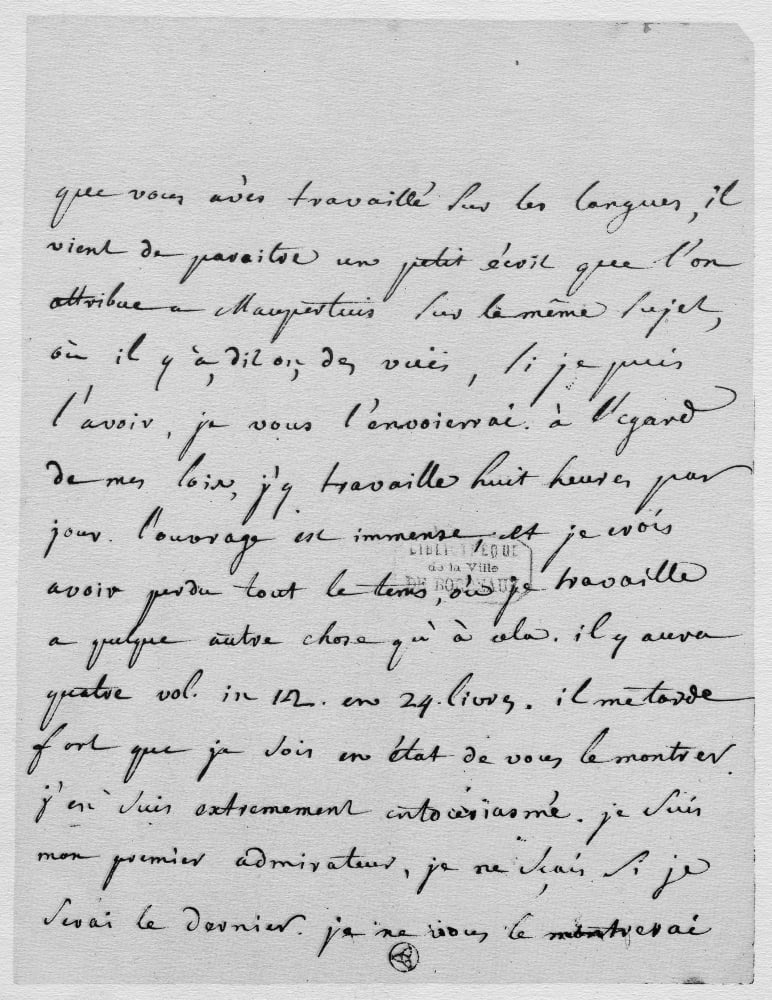 que vous avès travaillé sur les langues, il
vient de paraitre un petit écrit que l'on
attribue a Maupertuis sur le même sujet,
où il y à, dit on, des vuës, si je puis
l'avoir, je vous l'envoierrai. à l'egard
de mes loix, j'y travaille huit heures par
jour. l'ouvrage est immense, et je crois
avoir perdu tout le tems, où je travaille
a quelque autre chose qu'à cela. il y aura
quatre vol. in 12. en 24. livres. il me tarde
fort que je sois en état de vous le montrer.
j'en suis extremement entousiasmé. je suis
mon premier admirateur, je ne sçais si je
serai le dernier. je ne vous le montrerai
BIBLIOTHEQUE
de la Ville
DE BORDEAUX